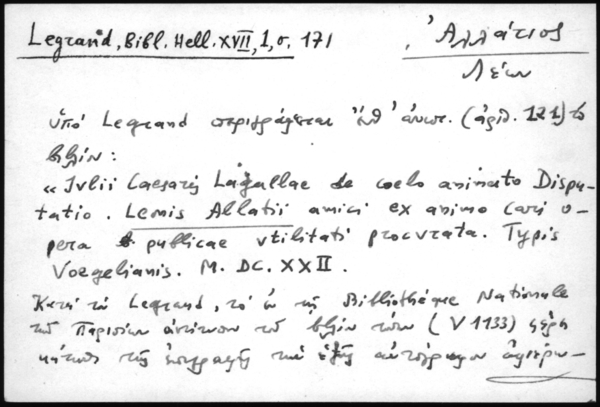 Legrand, Bibl. Hell. XVII, 1, σ. 171
Ἀλλάτιος
Λέων
ὑπό Legrand περιγράφεται ἔνθ' ἀνωτ. (ἀριθ. 121) τό
βιβλίον:
« Ivlii Caesaris Lagallae de coelo animato Dispu-
tatio. Leonis Allatii amici ex animo cari o-
pera publicae vtilitati procvrata. Typis
Voegelianis. M. DC. XXII.
Κατά τόν Legrand, τό ἐν τῇ Bibliothèque Nationale
τῶν Παρισίων ἀντίτυπον τοῦ βιβλίου τούτου (V 1133) φέρει
κάτωθι τῆς ἐπιγραφῆς τήν ἑξῆς αὐτόγραφον ἀφιέρω-